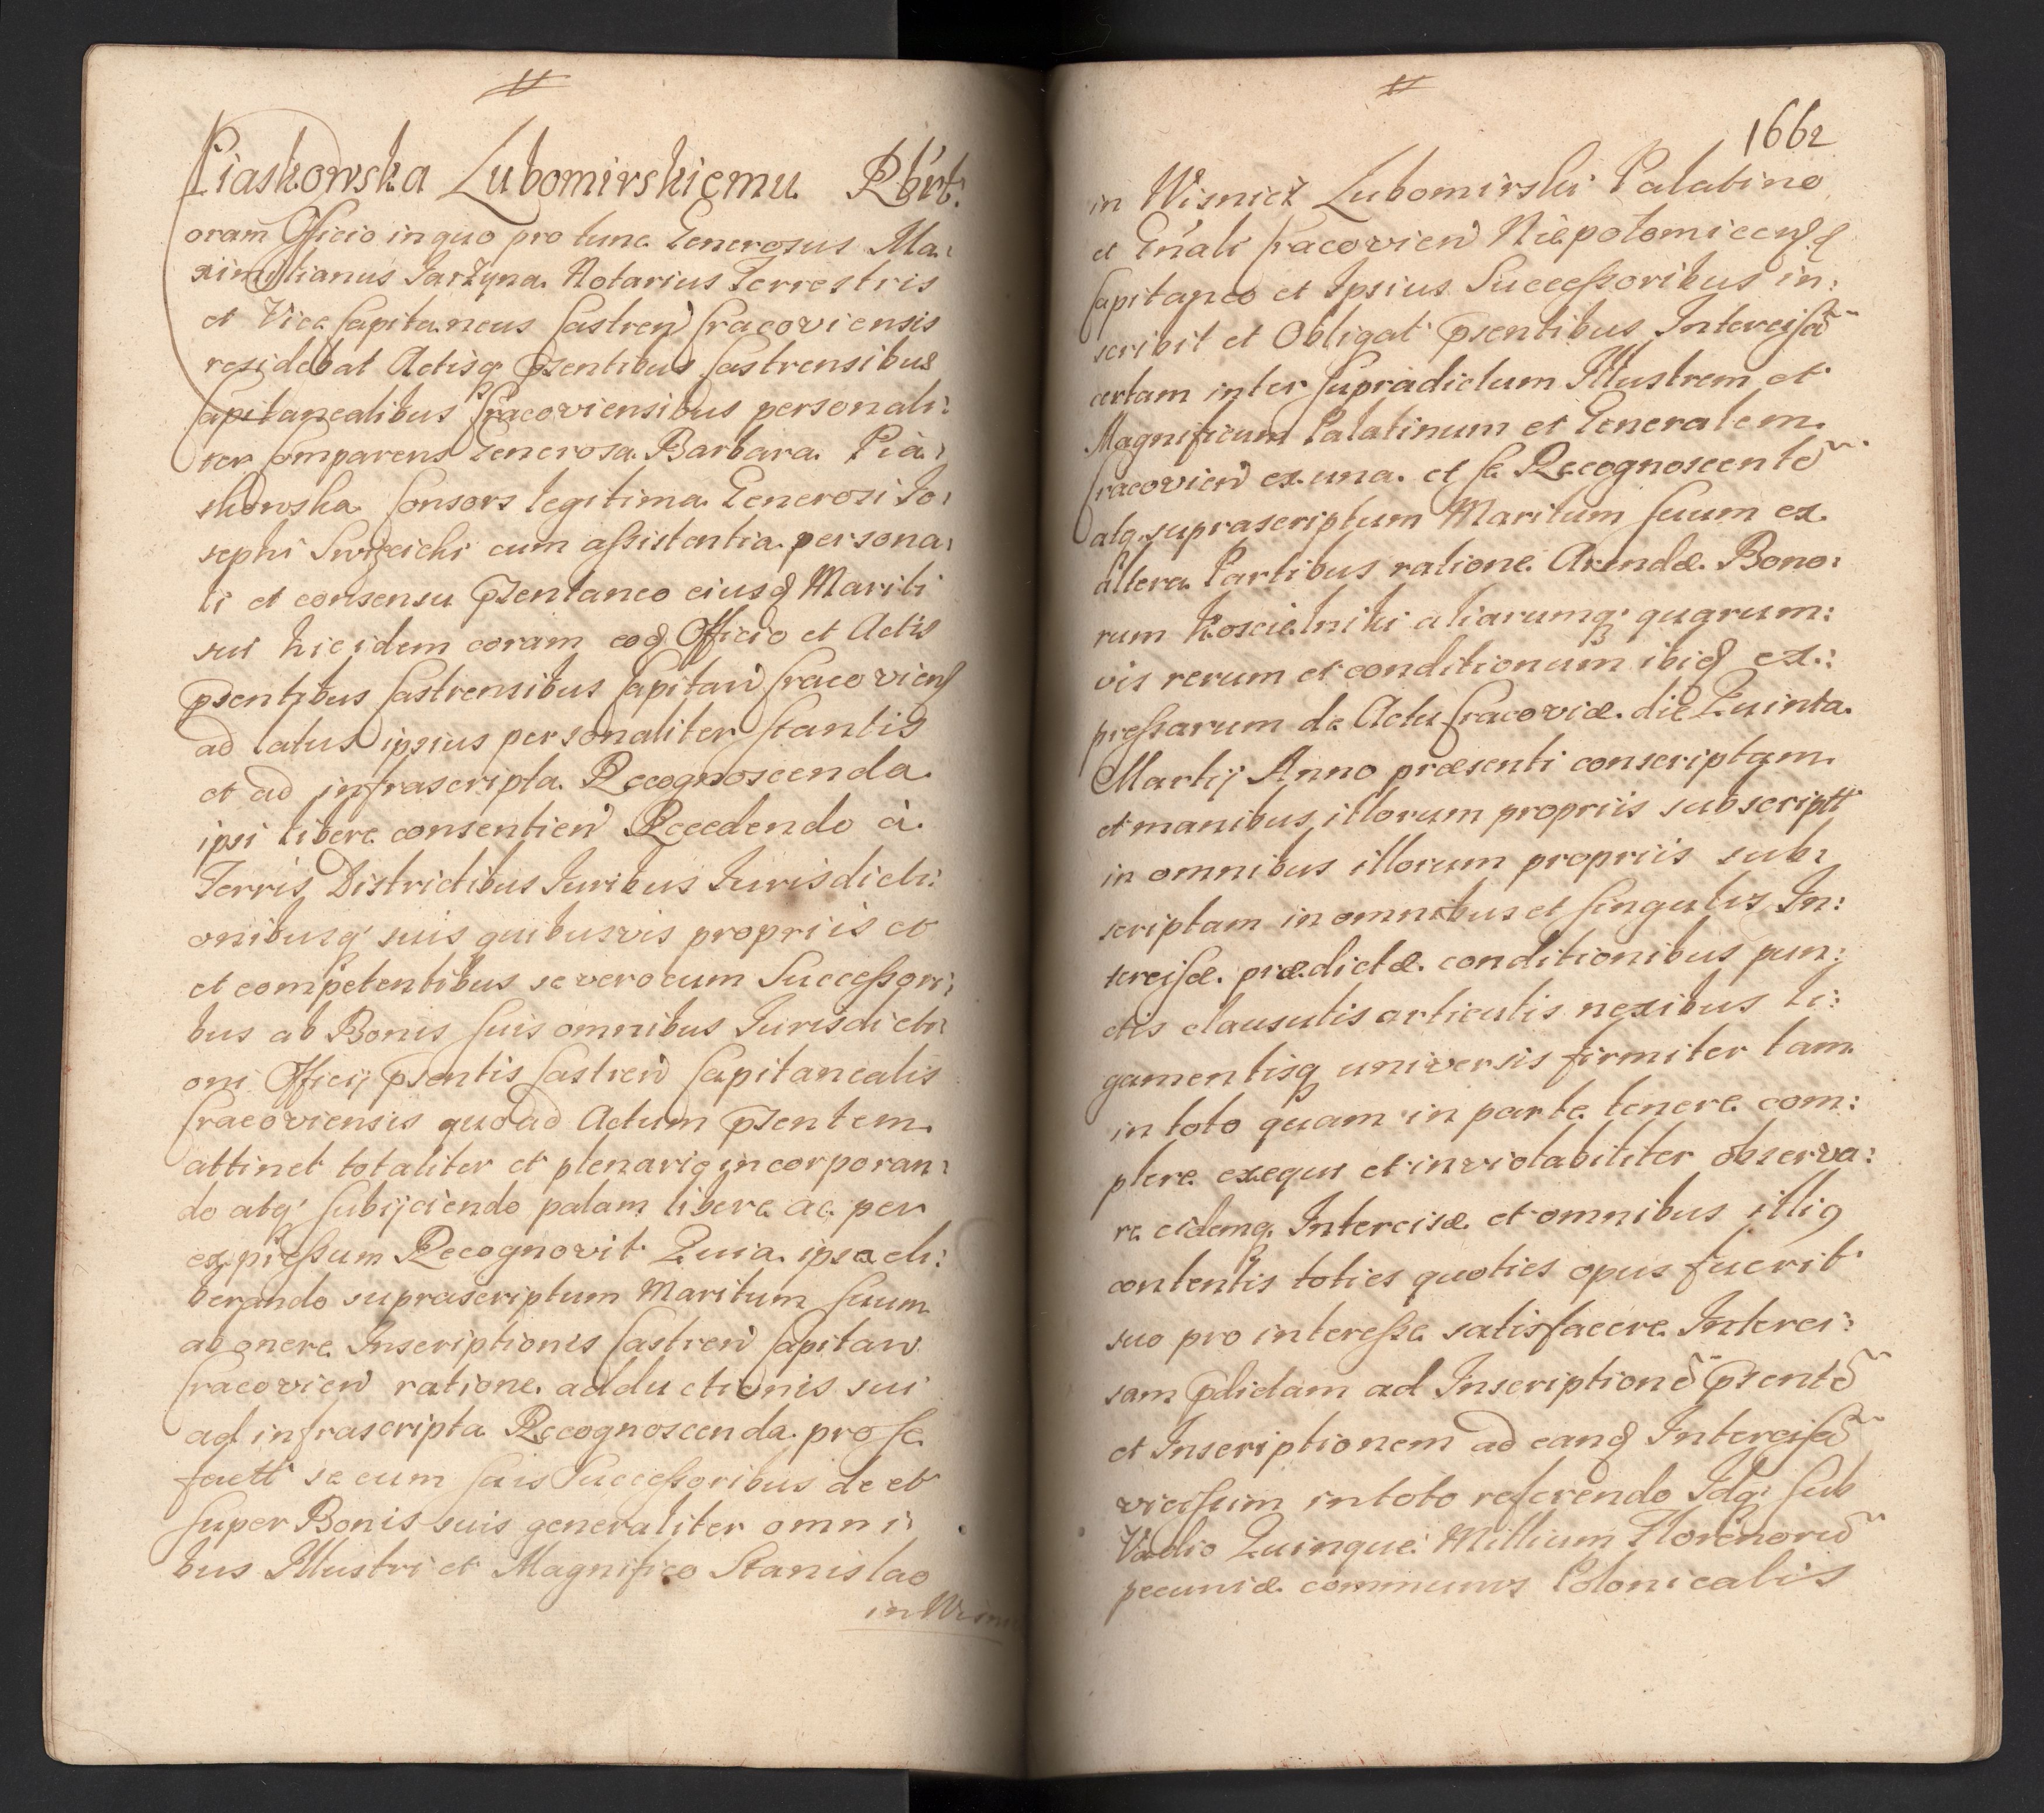 Piaskowska Lubomirskiemu Rbrt:
Coram Officio in quo pro tunc Generosus Ma:
ximilianus Jarzyna Notarius Terrestris
et Vice Capitaneus Castren Cracoviensis
residebat Actisq psentibus Castrensibus
Capitanealibus Cracoviensibus personali:
ter Comparens Generosa Barbara Pia:
skowska Consors legitima Generosi Jo:
sephi cum assistentia persona:
li et consensu psentaneo eiusd Mariti
sui hic idem coram eod Officio et Actis
psentibus Castrensibus Capitan Cracovien
ad latus ipsius personaliter stantis
et ad infrascripta Recognoscenda
ipsi libere consentien Recedendo à
Terris Districtibus Juribus Jurisdicti:
onibusq suis quibusvis propriis et
et competentibus se vero cum Successori:
bus ab Bonis suis omnibus Jurisdicti:
oni Officij psentis Castren Capitanealis
Cracoviensis quoad Actum psentem
attinet totaliter et plenarie incorporan:
do atq subijciendo palam libere ac per
expressum Recognovit Quia ipsa eli:
berando suprascriptum Maritum suum
ab onere Inscriptionis Castren Capitan
Cracovien ratione adductionis sui
ad infrascripta Recognoscenda pro se
factt se cum suis Successoribus de et
super Bonis suis generaliter omni:
bus Illustri et Magnifico Stanislao
in Wisni
1662
in Wisnicz Lubomirski Palatino
et Gnali Cracovien Niepotomicens
Capitaneo et Ipsius Successoribus in:
scribit et Obligat psentibus Intercisa
certam inter supradictum Illustrem et
Magnificum Palatinum et Generalem
Cracovien ex una et se Recognoscente
atq suprascriptum Maritum suum ex
altera Partibus ratione Arendæ Bono:
rum Koscielniki aliarumq quarum:
vis rerum et conditionum ibid ex:
pressarum de Actu Cracoviæ die Quinta
Martij Anno præsenti conscriptam
et manibus illorum propriis subscriptt
in omnibus illorum propriis sub:
scriptam in omnibus et singulis In:
tercisæ prædictæ conditionibus pun:
ctis clausulis articulis nexibus li:
gamentisq universis firmiter tam
in toto quam in parte tenere com:
plere exequi et inviolabiliter observa:
re eidemq Intercisæ et omnibus illig
contentis toties quoties opus fuerit
suo pro interesse satisfacere Interci:
sam pdictam ad Inscriptione psente
et Inscriptionem ad eand Intercisa
vicissim in toto referendo Idq sub
Vadio Quinque Millium Florenoru
pecuniæ communis Polonicalis